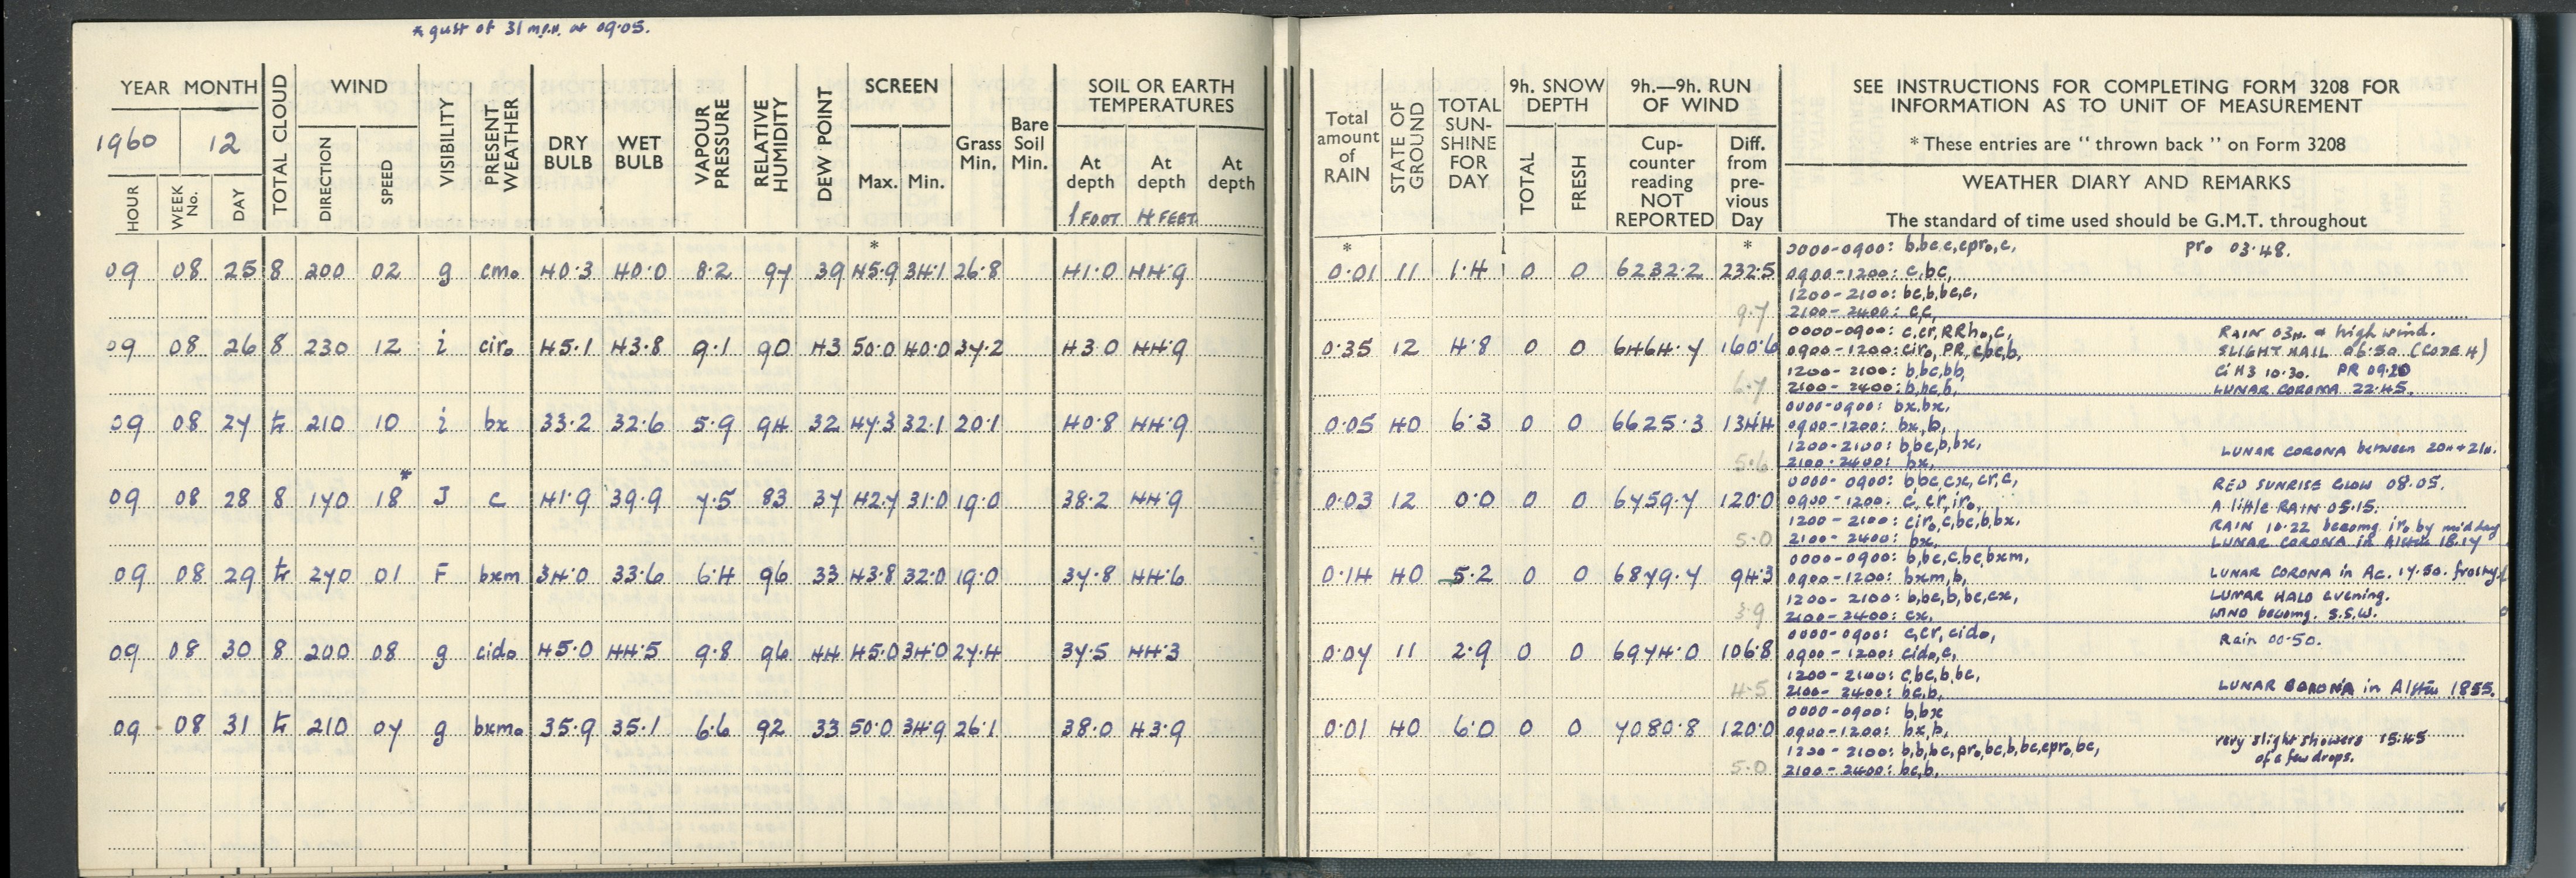 * gust of 31 m.p.h. at 09.05.
YEAR MONTH
1960 12
HOUR
WEEK No.
DAY
TOTAL CLOUD
WIND
DIRECTION
SPEED
VISIBILITY
PRESENT WEATHER
DRY BULB
WET BULB
VAPOUR PRESSURE
RELATIVE HUMIDITY
DEW POINT
SCREEN
Max. Min.
*
Grass Min.
Bare Soil Min.
SOIL OR EARTH TEMPERATURES
At depth 1 FOOT
At depth 4 FEET
At depth
09 08 25 8 200 02 g cm₀ 40.3 40.0 8.2 97 39 45.9 34.1 26.8 41.0 44.9
09 08 26 8 230 12 i cir₀ 45.1 43.8 9.1 90 43 50.0 40.0 37.2 43.0 44.9
09 08 27 tr 210 10 i bx 33.2 32.6 5.9 94 32 47.3 32.1 20.1 40.8 44.9
09 08 28 8 170 18* J c 41.9 39.9 7.5 83 37 42.7 31.0 19.0 38.2 44.9
09 08 29 tr 270 01 F bxm 34.0 33.6 6.4 96 33 43.8 32.0 19.0 37.8 44.6
09 08 30 8 200 08 g cid₀ 45.0 44.5 9.8 96 44 45.0 34.0 27.4 37.5 44.3
09 08 31 tr 210 07 g bxm₀ 35.9 35.1 6.6 92 33 50.0 34.9 26.1 38.0 43.9
Total amount of RAIN
*
STATE OF GROUND
TOTAL SUN-SHINE FOR DAY
9h. SNOW DEPTH
TOTAL
FRESH
9h.—9h. RUN OF WIND
Cup-counter reading NOT REPORTED
Diff. from pre-vious Day
*
SEE INSTRUCTIONS FOR COMPLETING FORM 3208 FOR
INFORMATION AS TO UNIT OF MEASUREMENT
* These entries are "thrown back" on Form 3208
WEATHER DIARY AND REMARKS
The standard of time used should be G.M.T. throughout
0000-0900: b,bc,c,cpr₀,c, pr₀ 03.48.
0.01 11 1.4 0 0 6232.2 232.5 0900-1200: c,bc,
1200-2100: bc,b,bc,c,
9.7 2100-2400: c,c,
0000-0900: c,cr,RRh₀,c, RAIN 03h. & high wind.
0.35 12 4.8 0 0 6464.7 160.6 0900-1200: cir₀, PR, c,bc,b, SLIGHT HAIL 06.50 (CODE 4)
1200-2100: b,bc,bb, Ci H3 10.30. PR 09.20
6.7 2100-2400: b,bc,b, LUNAR CORONA 22.45.
0000-0900: bx,bx,
0.05 40 6.3 0 0 6625.3 134.4 0900-1200: bx,b,
1200-2100: b,bc,b,bx, LUNAR CORONA between 20h+21h.
5.6 2100-2400: bx,
0000-0900: b,bc,cx,cr,c, RED SUNRISE GLOW 08.05.
0.03 12 0.0 0 0 6759.7 120.0 0900-1200: c,cr,ir₀, A little RAIN 05.15.
1200-2100: cir₀,c,bc,b,bx, RAIN 10.22 becomg ir₀ by midday
5.0 2100-2400: bx, LUNAR CORONA in Altcu 18.17
0000-0900: b,bc,c,bc,bxm,
0.14 40 5.2 0 0 6879.7 94.3 0900-1200: bxm,b, LUNAR CORONA in Ac. 17.50. frosty.
1200-2100: b,bc,b,bc,cx, LUNAR HALO evening.
3.9 2100-2400: cx, WIND becomg. S.S.W.
0000-0900: c,cr,cid₀, Rain 00.50.
0.07 11 2.9 0 0 6974.0 106.8 0900-1200: cid₀,c,
1200-2100: c,bc,b,bc,
4.5 2100-2400: bc,b, LUNAR CORONA in Altcu 1855.
0000-0900: b,bx
0.01 40 6.0 0 0 7080.8 120.0 0900-1200: bx,b,
1200-2100: b,b,bc,pr₀,bc,b,bc,cpr₀,bc, very slight showers 15.45
of a few drops.
5.0 2100-2400: bc,b,